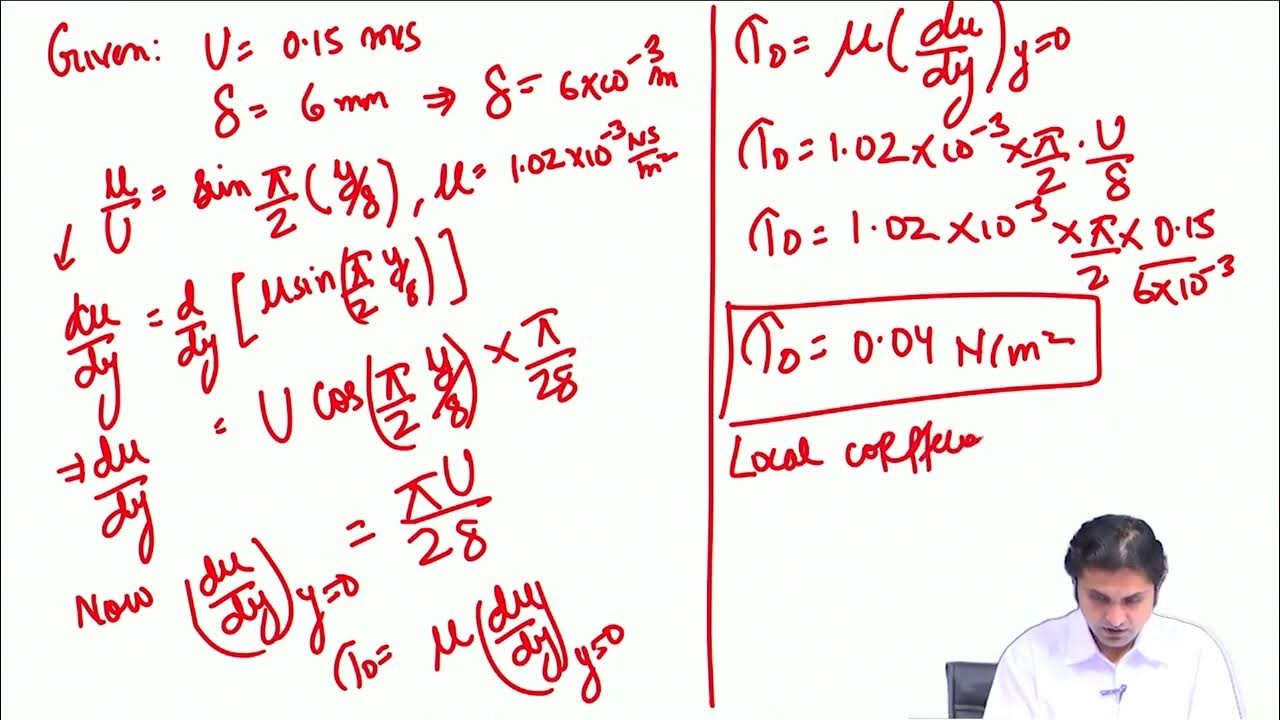 Given: U = 0.15 m/s
δ = 6 mm ⇒ δ = 6×10⁻³ m
u/U = sin π/2 (y/δ), μ = 1.02×10⁻³ NS/m²
↙
du/dy = d/dy [u sin(π/2 y/δ)]
= U cos(π/2 y/δ) × π/2δ
⇒ du/dy
Now (du/dy)y=0 = πU/2δ
τ0 = μ(du/dy)y=0
τ0 = μ(du/dy)y=0
τ0 = 1.02×10⁻³ × π/2 · U/δ
τ0 = 1.02×10⁻³ × π/2 × 0.15/6×10⁻³
τ0 = 0.04 N/m²
Local